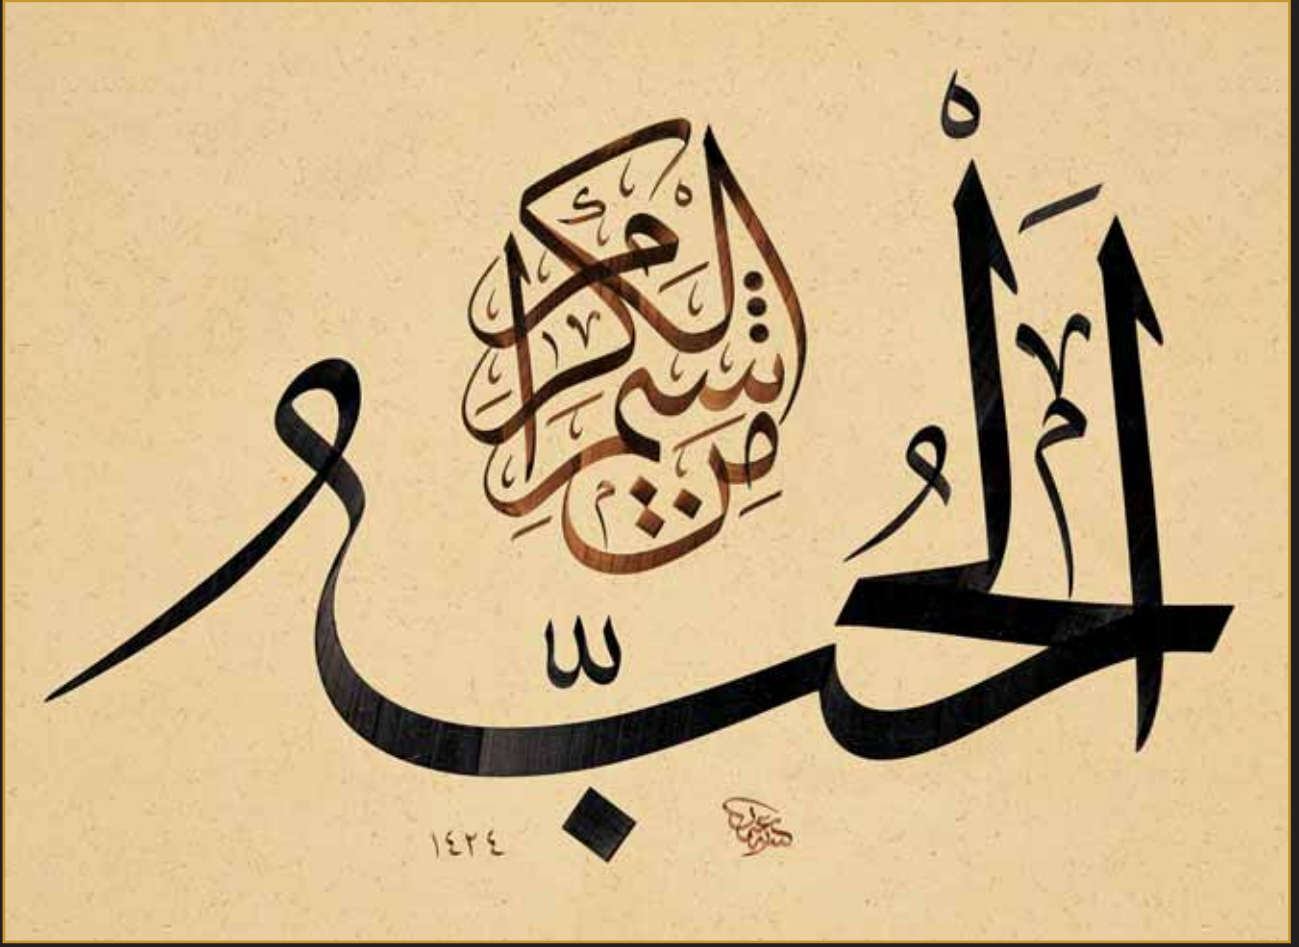 اَلْحُبُّ
مِنْ شِيَمِ الْكِرَامِ
١٤٢٤